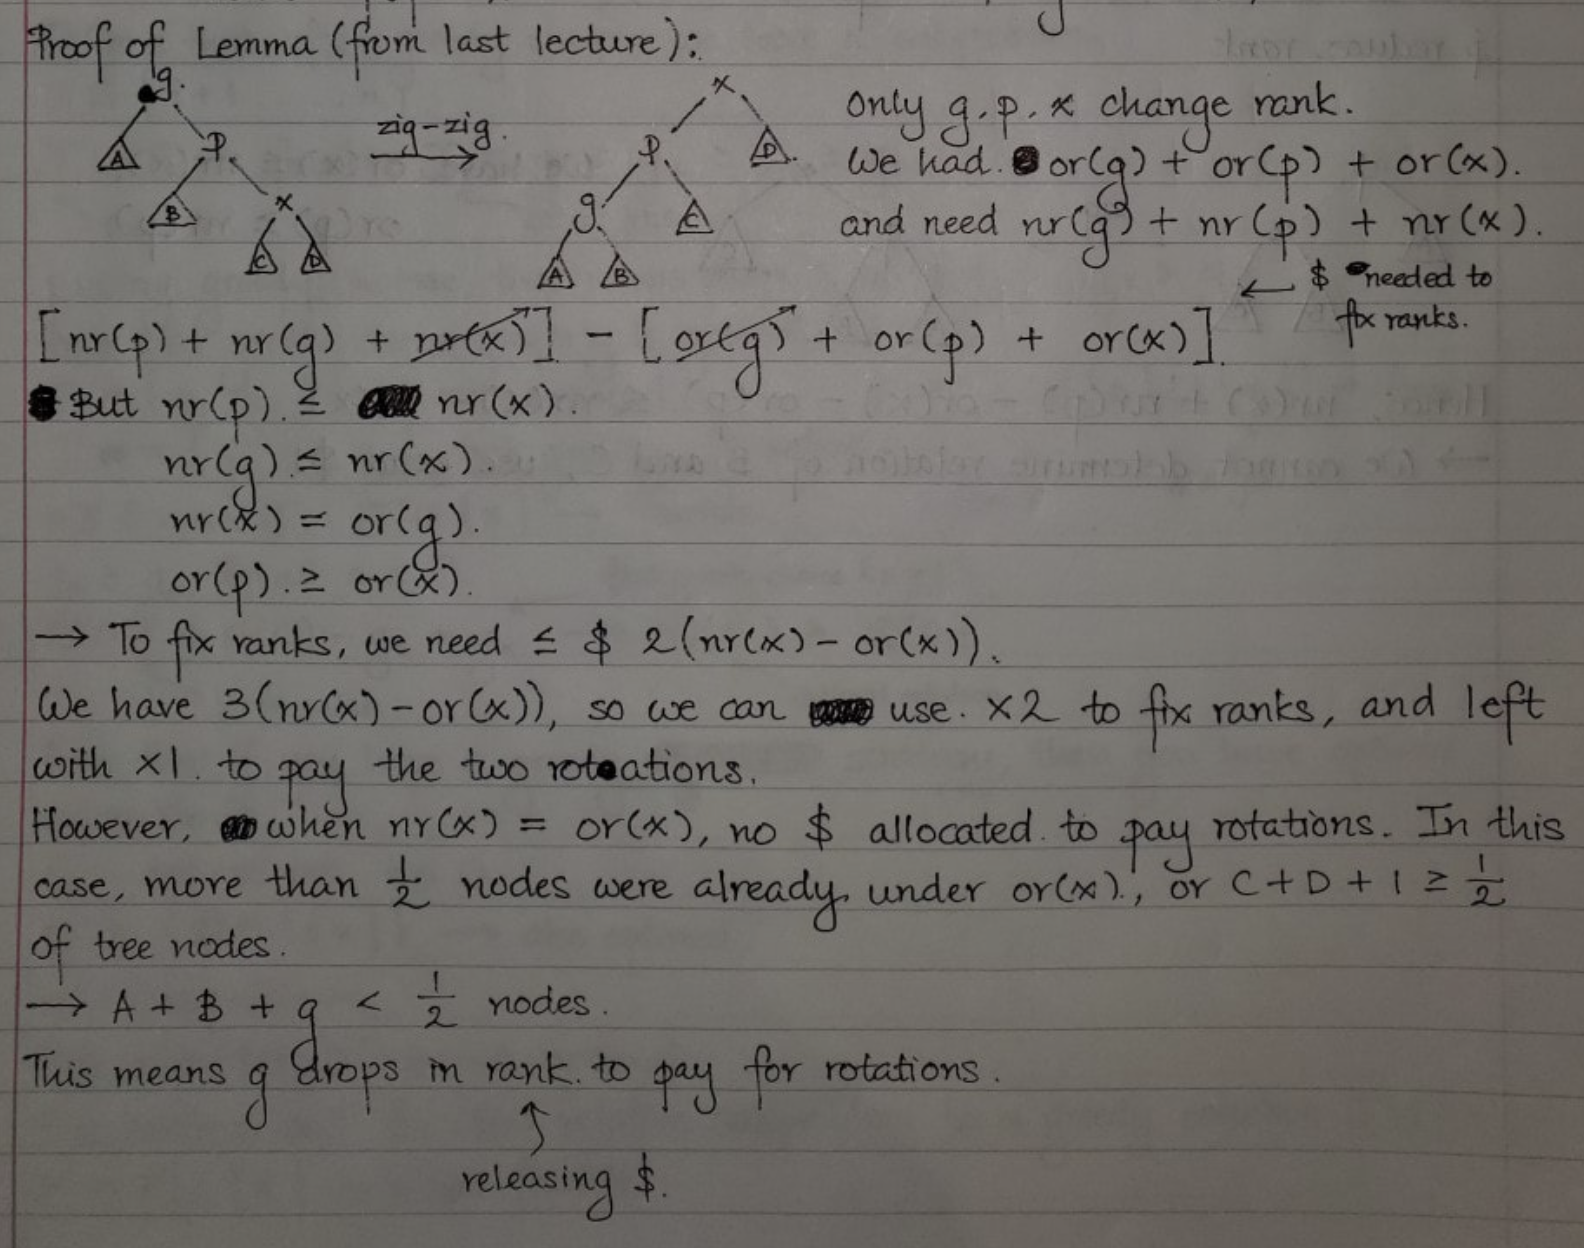 Proof of Lemma (from last lecture):
g.
A
P.
B
x
C
D
zig-zig.
x
P.
D.
g.
C
A
B
Only g, p, x change rank.
We had. or(g) + or(p) + or(x).
and need nr(g) + nr(p) + nr(x).
← $ needed to
fix ranks.
[nr(p) + nr(g) + nr(x)] - [or(g) + or(p) + or(x)]
But nr(p) ≤ nr(x).
nr(g) ≤ nr(x).
nr(x) = or(g).
or(p). ≥ or(x).
→ To fix ranks, we need ≤ $ 2(nr(x) - or(x)).
We have 3(nr(x) - or(x)), so we can use. x2 to fix ranks, and left
with x1. to pay the two rotations.
However, when nr(x) = or(x), no $ allocated. to pay rotations. In this
case, more than 1/2 nodes were already under or(x)., or C + D + 1 ≥ 1/2
of tree nodes.
→ A + B + g < 1/2 nodes.
This means g drops in rank. to pay for rotations.
↑
releasing $.